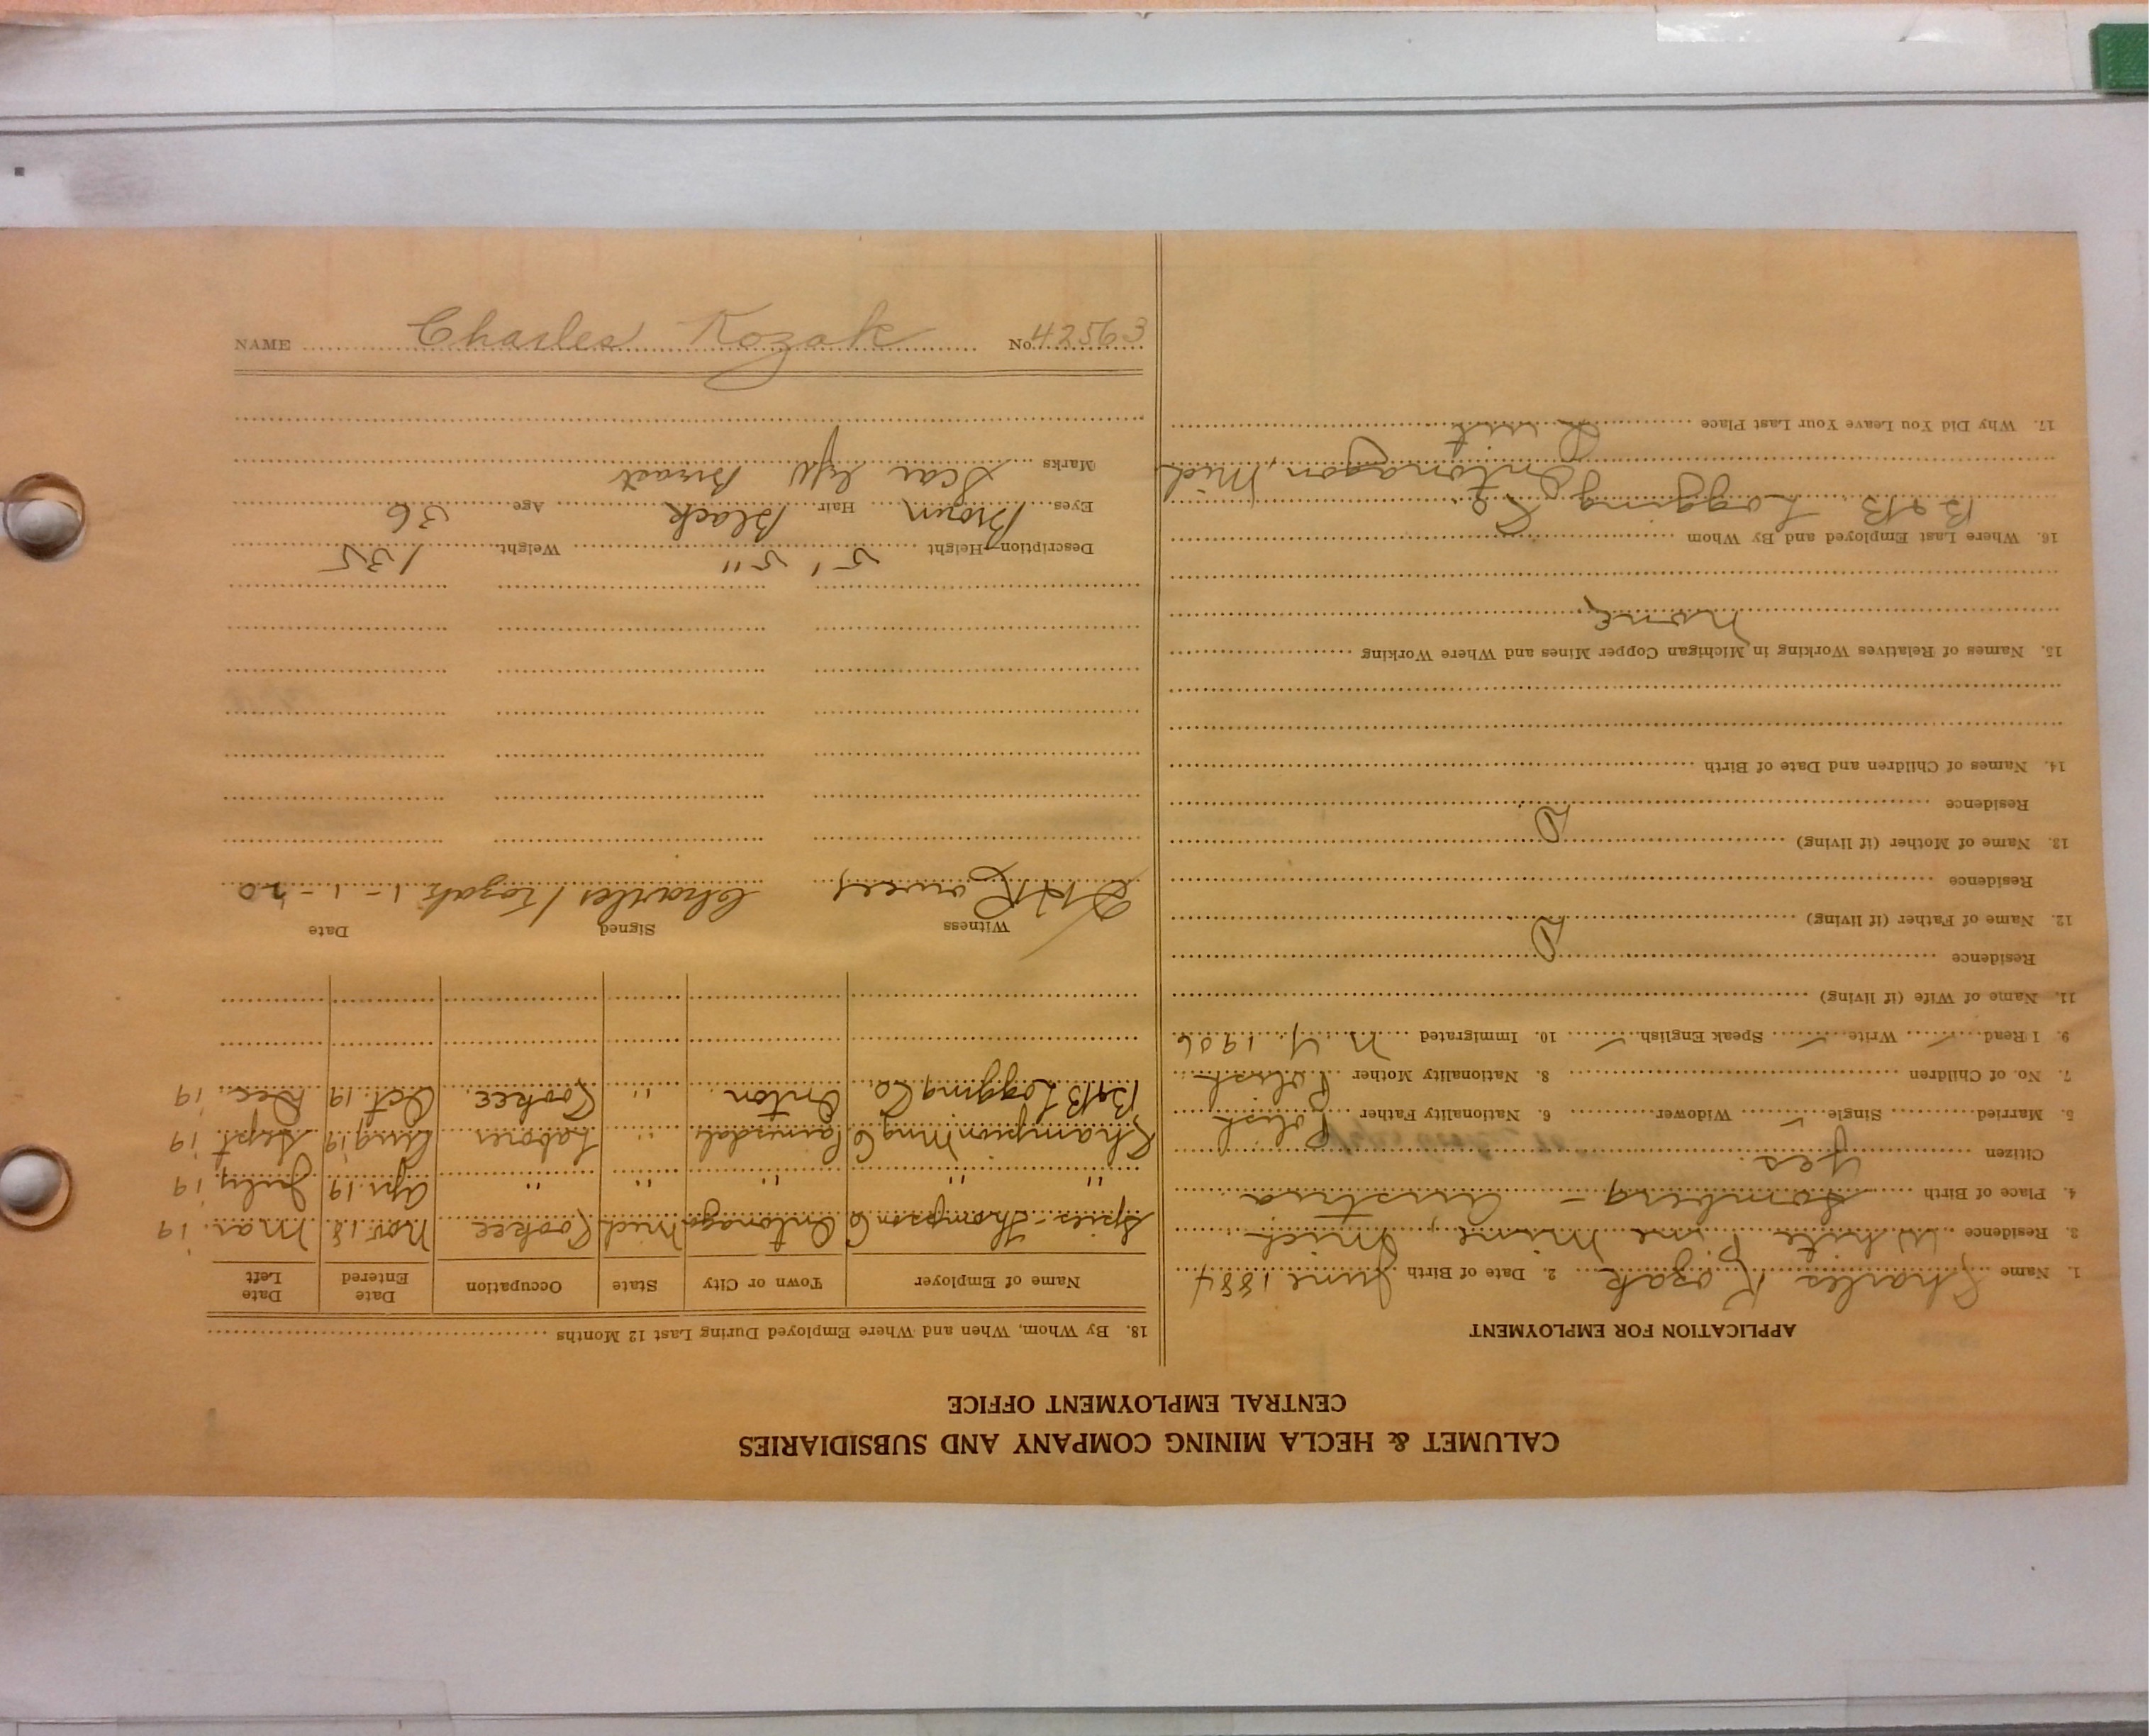 CALUMET & HECLA MINING COMPANY AND SUBSIDIARIES
CENTRAL EMPLOYMENT OFFICE
APPLICATION FOR EMPLOYMENT
1. Name Charles Kozak 2. Date of Birth June 1884
3. Residence White Pine Mine, Mich
4. Place of Birth Lomberg - Austria
Citizen Yes.
5. Married Single ✓ Widower 6. Nationality Father Polish
7. No. of Children 8. Nationality Mother Polish
9. I Read ✓ Write ✓ Speak English ✓ 10. Immigrated N.Y. 1906
11. Name of Wife (if living)
Residence
12. Name of Father (if living) D
Residence
13. Name of Mother (if living) D
Residence
14. Names of Children and Date of Birth
15. Names of Relatives Working in Michigan Copper Mines and Where Working
None
16. Where Last Employed and By Whom
B&B. Logging Co. Ontonagon, Mich
17. Why Did You Leave Your Last Place Quit
18. By Whom, When and Where Employed During Last 12 Months
Name of Employer Town or City State Occupation Date Entered Date Left
Spies-Thompson Co Ontonagon Mich Cookee Nov. 18 Mar. 19
" " " " " Apr. 19 July 19
Champion Mng Co Painsdale " Laborer Aug 19 Sept. 19
B&B Logging Co. Onton. " Cookee. Oct. 19 Dec. 19
Witness Signed Date
Charles Kozak 1-1-20
Description—Height 5' 5" Weight 135
Eyes Brown Hair Black Age 36
Marks Scar left Breast
NAME Charles Kozak No. 42563